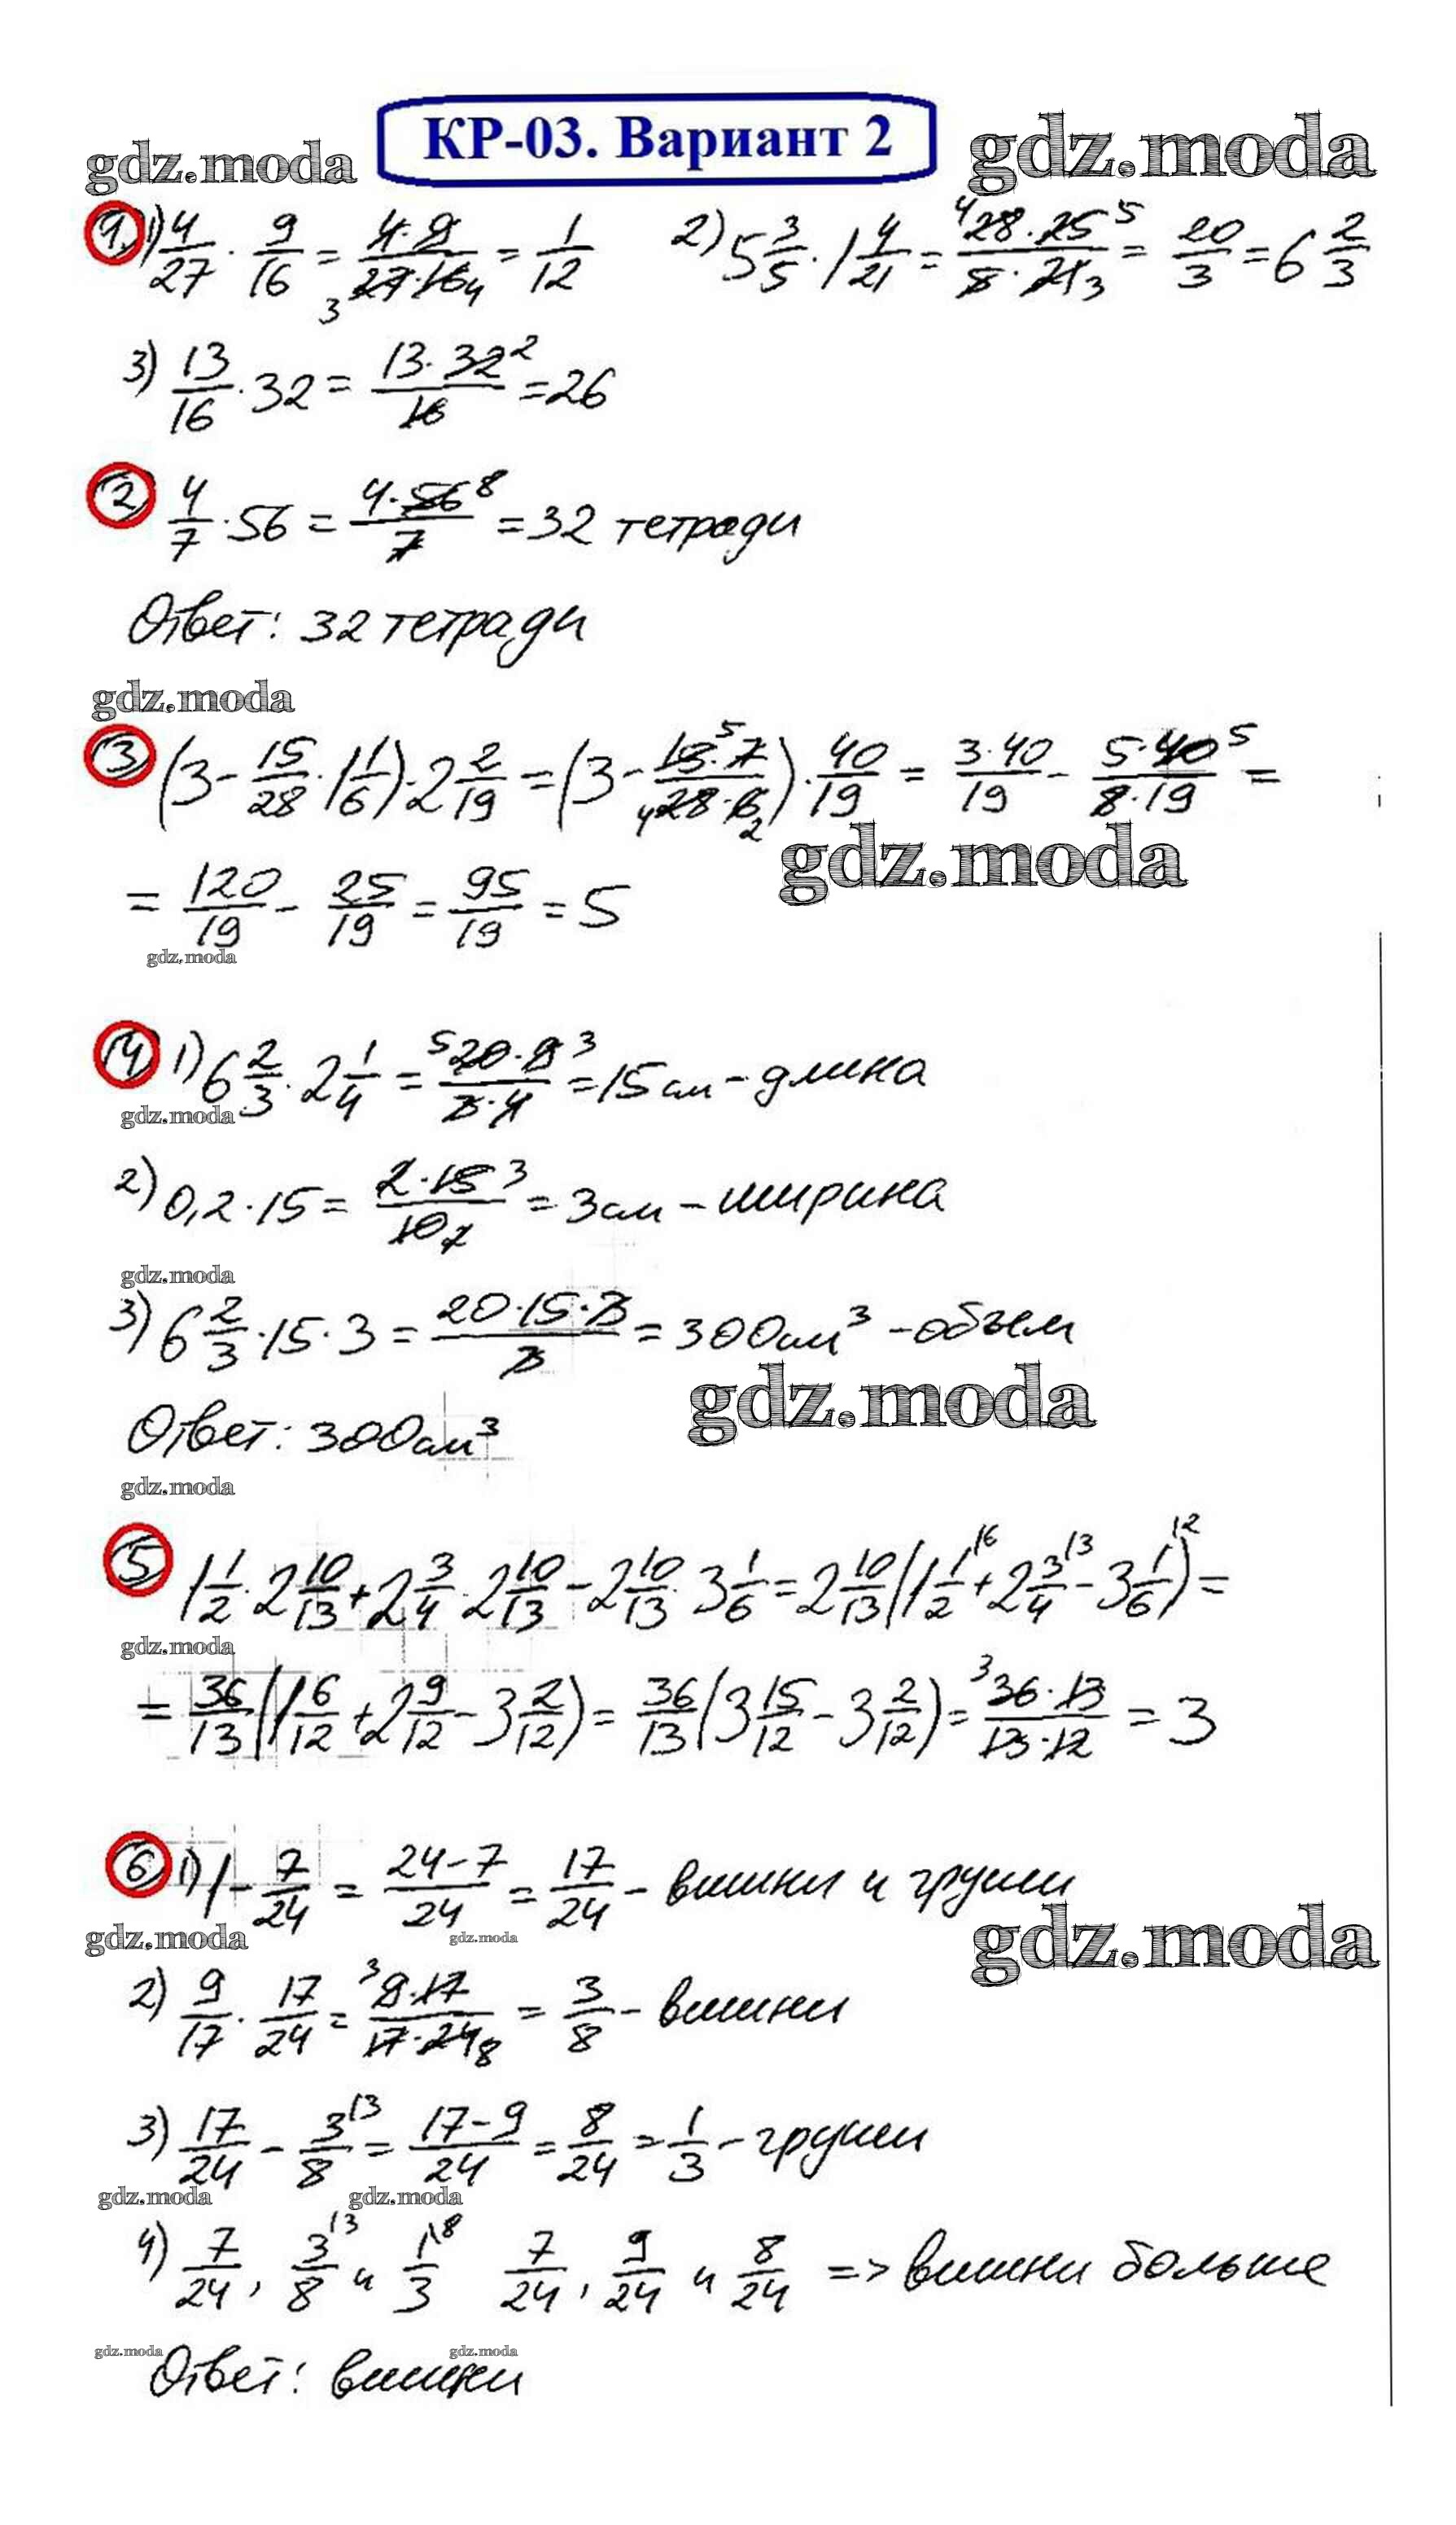 КР-03. Вариант 2
gdz.moda gdz.moda
1. 1) 4/27 · 9/16 = 4·9/27·16 3 4 = 1/12 2) 5 3/5 · 1 4/21 = 4 28·25 5/5·21 3 = 20/3 = 6 2/3
3) 13/16 · 32 = 13·32 2/16 = 26
2 4/7 · 56 = 4·56 8/7 = 32 тетради
Ответ: 32 тетради
gdz.moda
3 (3 - 15/28 · 1 1/6) · 2 2/19 = (3 - 15·7 5/4 28·6 2) · 40/19 = 3·40/19 - 5·40 5/8·19 =
gdz.moda
= 120/19 - 25/19 = 95/19 = 5
gdz.moda
4 1) 6 2/3 · 2 1/4 = 5 20·9 3/3·4 = 15 см - длина
gdz.moda
2) 0,2 · 15 = 2·15 3/10 2 = 3 см - ширина
gdz.moda
3) 6 2/3 · 15 · 3 = 20·15·3/3 = 300 см³ - объем
gdz.moda
Ответ: 300 см³
gdz.moda
5 1 1/2 · 2 10/13 + 2 3/4 · 2 10/13 - 2 10/13 · 3 1/6 = 2 10/13 (1 1/2 \6 + 2 3/4 \3 - 3 1/6 \2) =
gdz.moda
= 36/13 (1 6/12 + 2 9/12 - 3 2/12) = 36/13 (3 15/12 - 3 2/12) = 3 36·13/13·12 = 3
6 1) 1 - 7/24 = 24-7/24 = 17/24 - вишни и груши
gdz.moda gdz.moda gdz.moda
2) 9/17 · 17/24 = 3 9·17/17·24 8 = 3/8 - вишни
3) 17/24 - 3/8 \3 = 17-9/24 = 8/24 = 1/3 - груши
gdz.moda gdz.moda
4) 7/24, 3/8 \3 и 1/3 \8 7/24, 9/24 и 8/24 => вишни больше
gdz.moda gdz.moda
Ответ: вишни